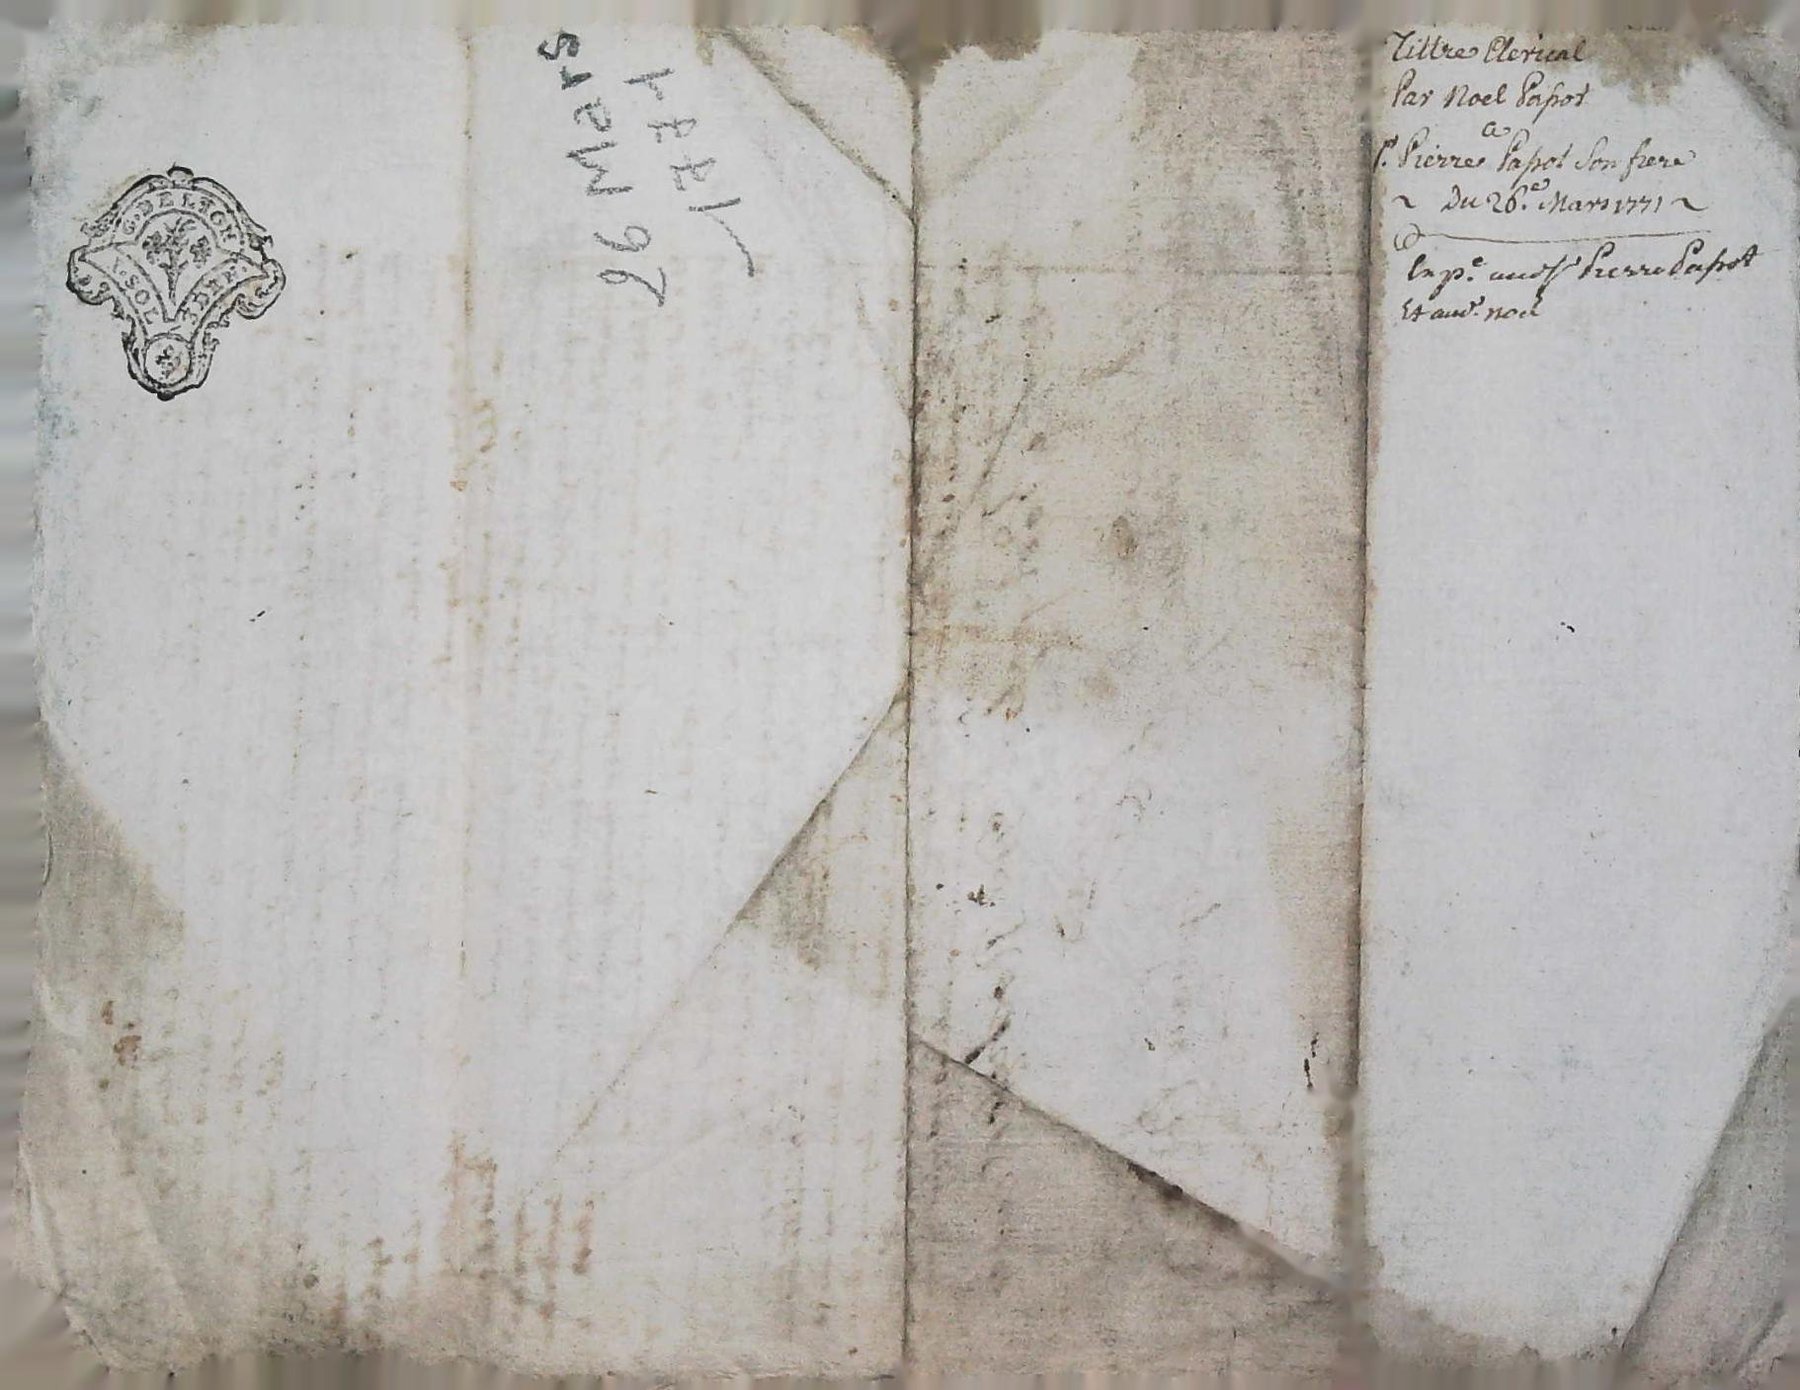 G. DE LYON
1. SOL
26 Mars
1771
Tittre Clerical
Par Noel Papot
a
Sr. Pierre Papot Son frere
~ Du 26.e Mars 1771 ~
Exp.e audS.r Pierre Papot
Et aud.t noel